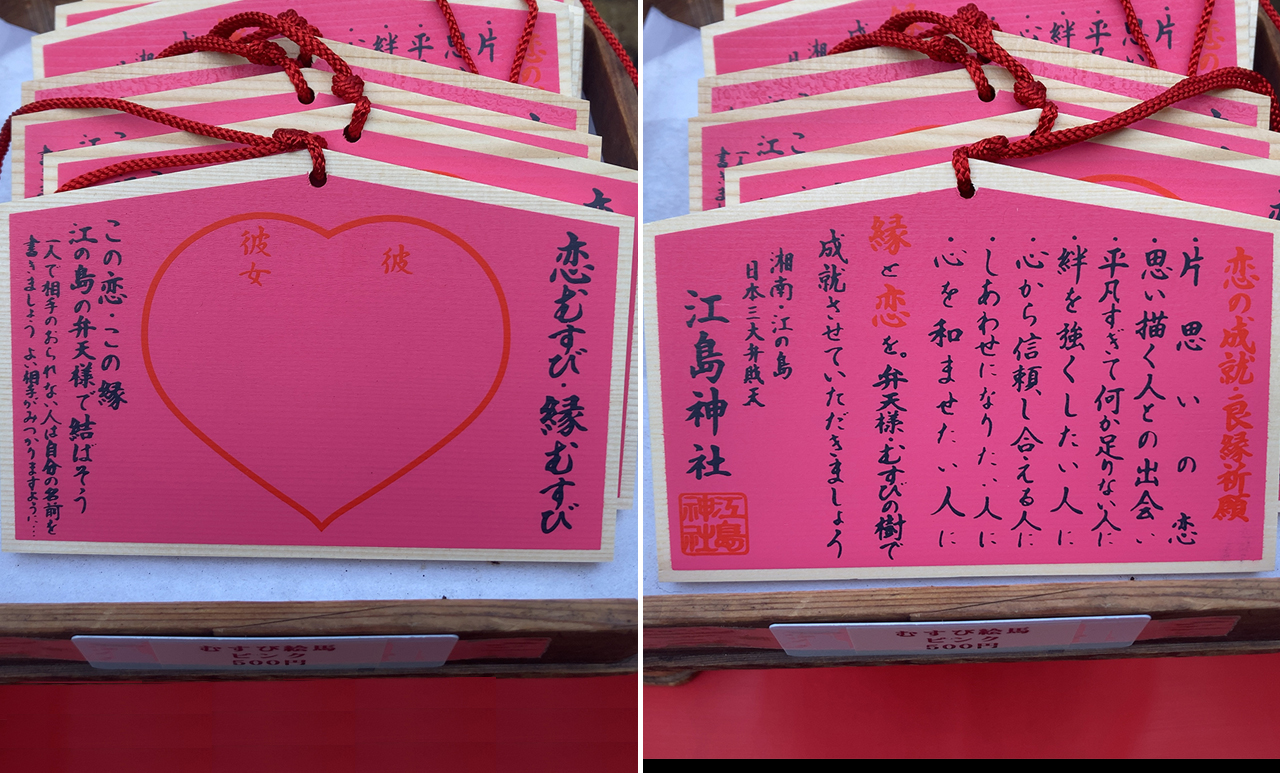 恋むすび・縁むすび
彼
彼女
この恋・この縁
江の島の弁天様で結ばそう
一人で相手のおられない人は自分の名前を
書きましょう よい相手がみつかりますように…
むすび絵馬
ピンク
500円
恋の成就・良縁祈願
・片思いの恋
・思い描く人との出会い
・平凡すぎて何か足りない人に
・絆を強くしたい人に
・心から信頼し合える人に
・しあわせになりたい人に
・心を和ませたい人に
縁と恋を。弁天様・むすびの樹で
成就させていただきましょう
湘南・江の島
日本三大弁財天
江島神社
江島神社
むすび絵馬
ピンク
500円